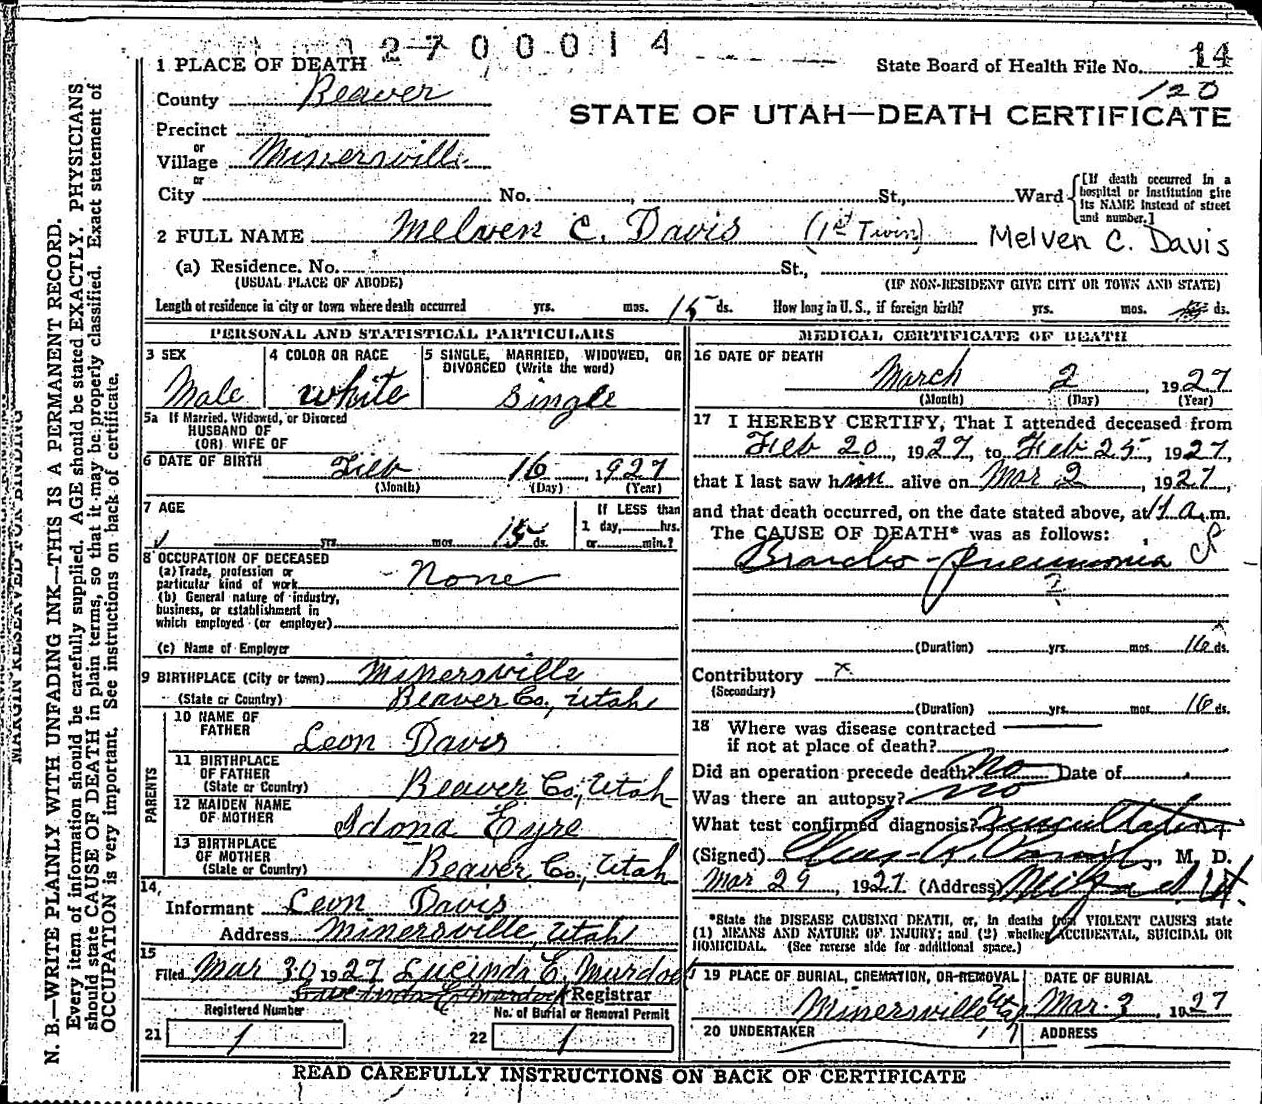 2700014
1 PLACE OF DEATH
State Board of Health File No. 14
120
County Beaver
STATE OF UTAH—DEATH CERTIFICATE
Precinct
or
Village Minersville
or
City No. , St., Ward
[If death occurred in a hospital or institution give its NAME instead of street and number.]
2 FULL NAME Melven C. Davis (1st Twin) Melven C. Davis
(a) Residence. No. St.,
(USUAL PLACE OF ABODE) (IF NON-RESIDENT GIVE CITY OR TOWN AND STATE)
Length of residence in city or town where death occurred yrs. mos. 15 ds. How long in U. S., if foreign birth? yrs. mos. ds.
PERSONAL AND STATISTICAL PARTICULARS
3 SEX
Male
4 COLOR OR RACE
White
5 SINGLE, MARRIED, WIDOWED, OR
DIVORCED (Write the word)
Single
5a If Married, Widowed, or Divorced
HUSBAND OF
(OR) WIFE OF
6 DATE OF BIRTH Feb 16, 1927
(Month) (Day) (Year)
7 AGE
yrs. mos. 15 ds.
If LESS than
1 day, hrs.
or min.?
8 OCCUPATION OF DECEASED
(a) Trade, profession or
particular kind of work None
(b) General nature of industry,
business, or establishment in
which employed (or employer)
(c) Name of Employer
9 BIRTHPLACE (City or town) Minersville
(State or Country) Beaver Co., Utah
PARENTS
10 NAME OF
FATHER Leon Davis
11 BIRTHPLACE
OF FATHER
(State or Country) Beaver Co., Utah
12 MAIDEN NAME
OF MOTHER Idona Eyre
13 BIRTHPLACE
OF MOTHER
(State or Country) Beaver Co., Utah
14.
Informant Leon Davis
Address Minersville, Utah
15
Filed Mar 30 1927 Lucinda E. Murdock
Registrar
Registered Number
21 1
No. of Burial or Removal Permit
22 1
MEDICAL CERTIFICATE OF DEATH
16 DATE OF DEATH
March 2, 1927
(Month) (Day) (Year)
17 I HEREBY CERTIFY, That I attended deceased from
Feb 20, 1927, to Feb 25, 1927,
that I last saw him alive on Mar 2, 1927,
and that death occurred, on the date stated above, at 11 a.m.
The CAUSE OF DEATH* was as follows:
Broncho-Pneumonia
?
(Duration) yrs. mos. 16 ds.
Contributory x
(Secondary)
(Duration) yrs. mos. 16 ds.
18 Where was disease contracted
if not at place of death?
Did an operation precede death? No Date of
Was there an autopsy? No
What test confirmed diagnosis? Auscultation
(Signed) M. D.
Mar 29, 1927 (Address) Milford Ut.
*State the DISEASE CAUSING DEATH, or, in deaths from VIOLENT CAUSES state
(1) MEANS AND NATURE OF INJURY; and (2) whether ACCIDENTAL, SUICIDAL OR
HOMICIDAL. (See reverse side for additional space.)
19 PLACE OF BURIAL, CREMATION, OR REMOVAL
Minersville Utah
DATE OF BURIAL
Mar. 3, 1927
20 UNDERTAKER
ADDRESS
READ CAREFULLY INSTRUCTIONS ON BACK OF CERTIFICATE
MARGIN RESERVED FOR BINDING
N. B.—WRITE PLAINLY WITH UNFADING INK—THIS IS A PERMANENT RECORD.
Every item of information should be carefully supplied. AGE should be stated EXACTLY. PHYSICIANS
should state CAUSE OF DEATH in plain terms, so that it may be properly classified. Exact statement of
OCCUPATION is very important. See instructions on back of certificate.